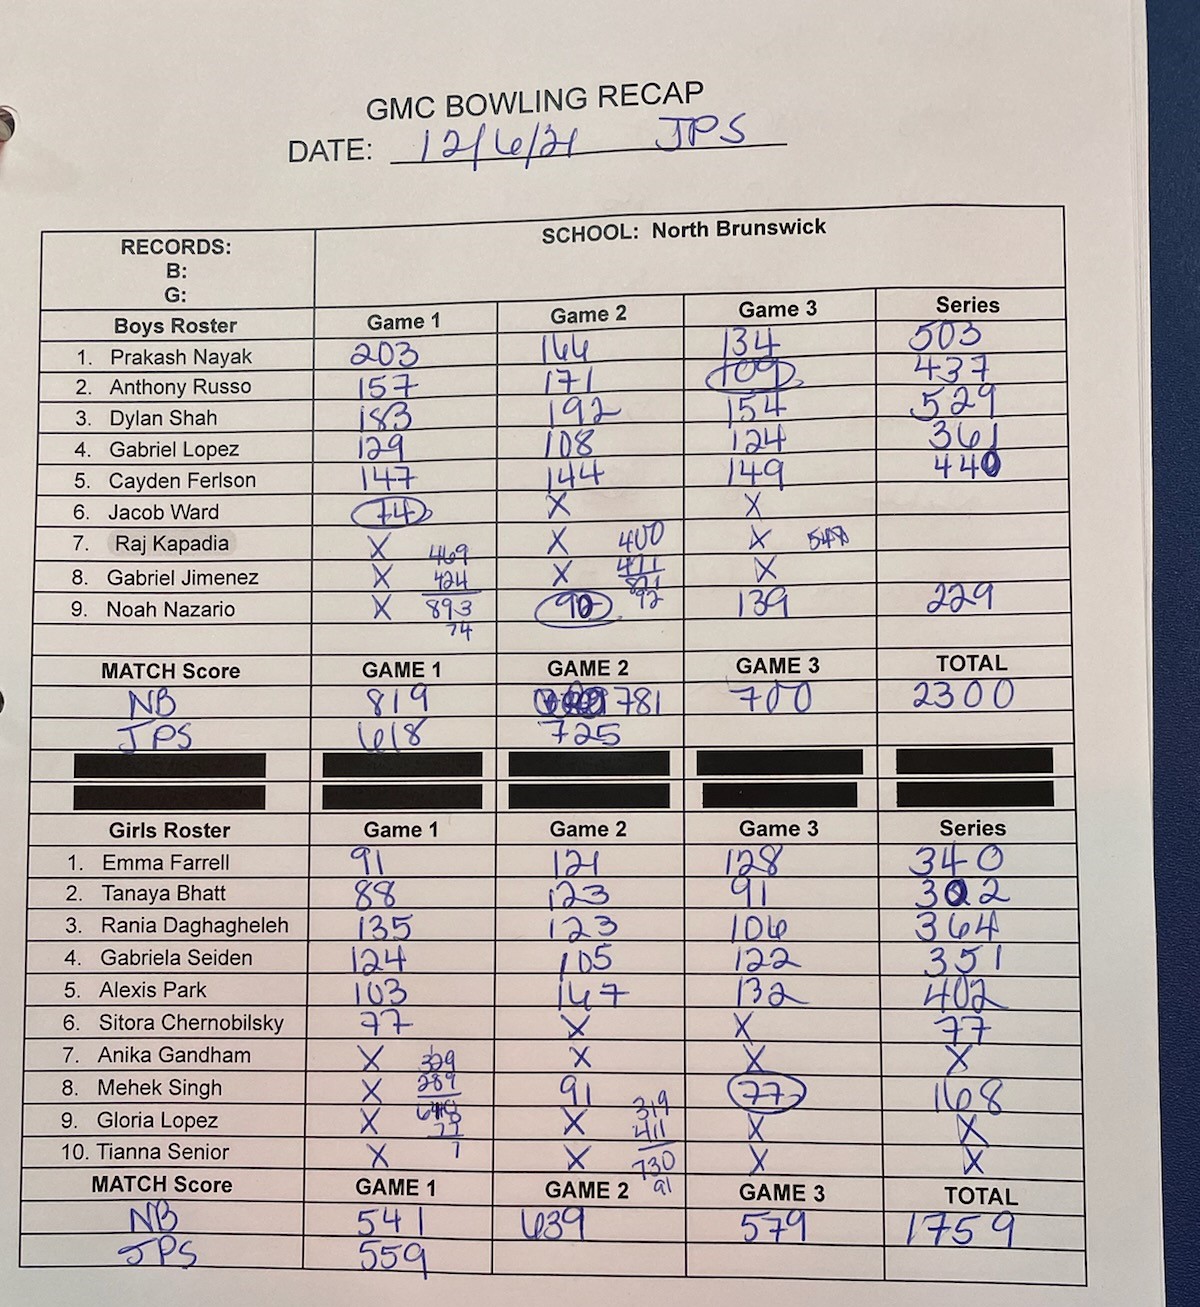 GMC BOWLING RECAP
DATE: 12/6/21 JPS
RECORDS: SCHOOL: North Brunswick
B:
G:
Boys Roster Game 1 Game 2 Game 3 Series
1. Prakash Nayak 203 166 134 503
2. Anthony Russo 157 171 109 437
3. Dylan Shah 183 192 154 529
4. Gabriel Lopez 129 108 124 361
5. Cayden Ferlson 147 144 149 440
6. Jacob Ward 74 X X
7. Raj Kapadia X X 400 X
8. Gabriel Jimenez X 469 424 X 471 X
9. Noah Nazario X 893 90 139 229
74
MATCH Score GAME 1 GAME 2 GAME 3 TOTAL
NB 819 781 700 2300
JPS 618 725
Girls Roster Game 1 Game 2 Game 3 Series
1. Emma Farrell 91 121 128 340
2. Tanaya Bhatt 88 123 91 302
3. Rania Daghagheleh 135 123 106 364
4. Gabriela Seiden 124 105 122 351
5. Alexis Park 103 167 132 402
6. Sitora Chernobilsky 77 X X 77
7. Anika Gandham X X X X
8. Mehek Singh X 289 91 77 168
9. Gloria Lopez X X 319 411 X X
10. Tianna Senior X X 730 X X
MATCH Score GAME 1 GAME 2 91 GAME 3 TOTAL
NB 541 639 579 1759
JPS 559